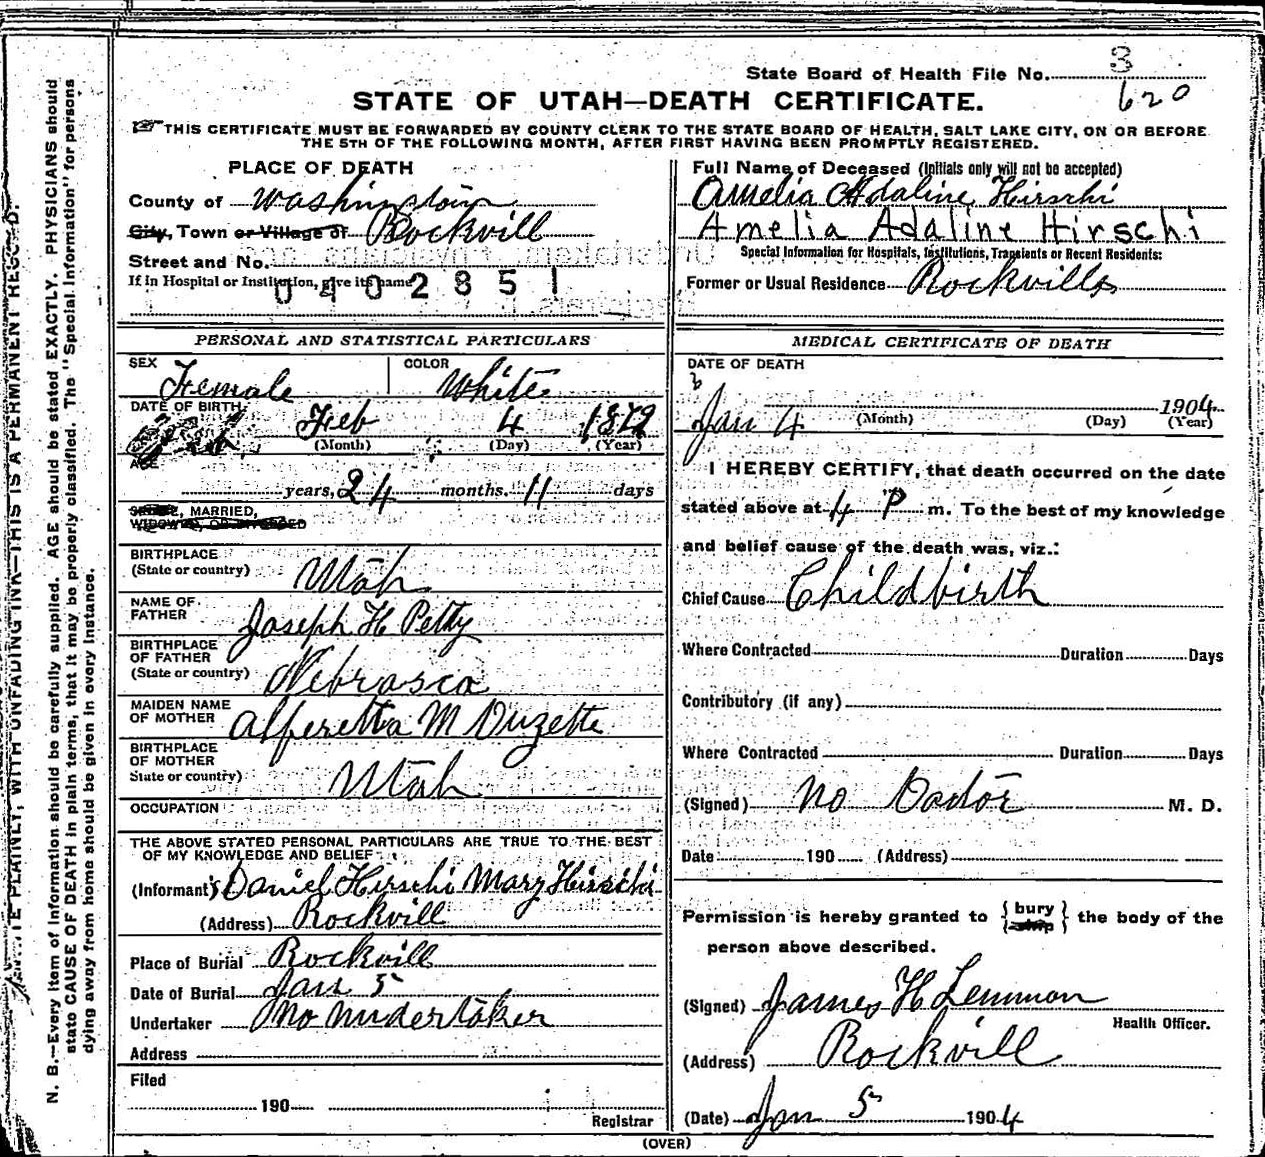 3
State Board of Health File No. 620
STATE OF UTAH—DEATH CERTIFICATE.
THIS CERTIFICATE MUST BE FORWARDED BY COUNTY CLERK TO THE STATE BOARD OF HEALTH, SALT LAKE CITY, ON OR BEFORE
THE 5TH OF THE FOLLOWING MONTH, AFTER FIRST HAVING BEEN PROMPTLY REGISTERED.
PLACE OF DEATH
County of Washington
City, Town or Village of Rockvill
Street and No.
If in Hospital or Institution, give its name
0402851
Full Name of Deceased (Initials only will not be accepted)
Amelia Adaline Hirschi
Amelia Adaline Hirschi
Special Information for Hospitals, Institutions, Transients or Recent Residents:
Former or Usual Residence Rockville
PERSONAL AND STATISTICAL PARTICULARS
SEX Female COLOR White
DATE OF BIRTH Feb 4 1879
(Month) (Day) (Year)
AGE
years, 24 months. 11 days
SINGLE, MARRIED,
WIDOWED, OR DIVORCED
BIRTHPLACE
(State or country) Utah
NAME OF
FATHER Joseph H Petty
BIRTHPLACE
OF FATHER
(State or country) Nebrasca
MAIDEN NAME
OF MOTHER Alferetta M Duzette
BIRTHPLACE
OF MOTHER
State or country) Utah
OCCUPATION
THE ABOVE STATED PERSONAL PARTICULARS ARE TRUE TO THE BEST
OF MY KNOWLEDGE AND BELIEF
(Informant) Daniel Hirschi Mary Hirschi
(Address) Rockvill
Place of Burial Rockvill
Date of Burial Jan 5
Undertaker No undertaker
Address
Filed
190
Registrar
MEDICAL CERTIFICATE OF DEATH
DATE OF DEATH
Jan 4 1904
(Month) (Day) (Year)
I HEREBY CERTIFY, that death occurred on the date
stated above at 4 P m. To the best of my knowledge
and belief cause of the death was, viz.:
Chief Cause Childbirth
Where Contracted Duration Days
Contributory (if any)
Where Contracted Duration Days
(Signed) No Doctor M. D.
Date 190 (Address)
Permission is hereby granted to { bury ship } the body of the
person above described.
(Signed) James H Lemmon
Health Officer.
(Address) Rockvill
(Date) Jan 5 1904
(OVER)
N. B.—Every item of information should be carefully supplied. AGE should be stated EXACTLY. PHYSICIANS should
state CAUSE OF DEATH in plain terms, that it may be properly classified. The "Special Information" for persons
dying away from home should be given in every instance.
WRITE PLAINLY, WITH UNFADING INK—THIS IS A PERMANENT RECORD.